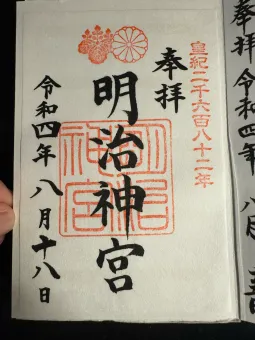 皇紀二千六百八十二年
奉拝
明治神宮
令和四年八月十八日
明治神宮
奉拝
令和四年
八月